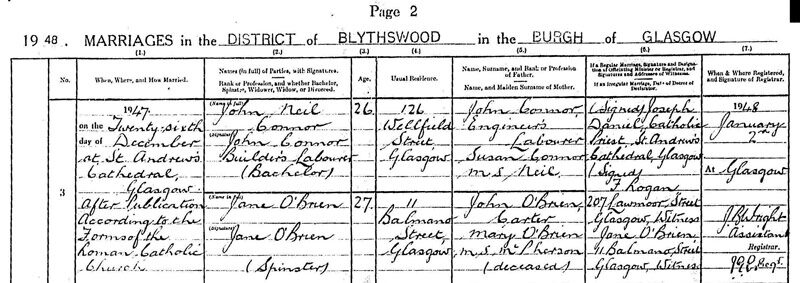 Page 2
1948. MARRIAGES in the DISTRICT of BLYTHSWOOD in the BURGH of GLASGOW
(1.) (2.) (3.) (4.) (5.) (6.) (7.)
No. When, Where, and How Married. Names (in full) of Parties, with Signatures. Rank or Profession, and whether Bachelor, Spinster, Widower, Widow, or Divorced. Age. Usual Residence. Name, Surname, and Rank or Profession of Father. Name, and Maiden Surname of Mother. If a Regular Marriage, Signature and Designation of Officiating Minister or Registrar, and Signatures and Addresses of Witnesses. If an Irregular Marriage, Date of Decree of Declarator. When & Where Registered, and Signature of Registrar.
3
1947
on the Twenty-sixth
day of December
at St. Andrew's
Cathedral,
Glasgow
After Publication
According to the
Forms of the
Roman Catholic
Church
(Name in full)
John Neil
Connor
(Signature)
John Connor
Builder's Labourer
(Bachelor)
26
126
Wellfield
Street,
Glasgow
John Connor,
Engineer's
Labourer
Susan Connor
m.s. Neil
(Signed) Joseph
Daniel, Catholic
Priest, St. Andrew's
Cathedral, Glasgow
(Signed)
F. Hogan
207 Lawmoor Street
Glasgow, Witness
Jane O'Brien
11 Balmano, Street
Glasgow, Witness
1948
January
2nd
At Glasgow
Assistant
Registrar.
Jane O'Brien
(Signature)
Jane O'Brien
(Spinster)
27.
11
Balmano
Street,
Glasgow
John O'Brien,
Carter
Mary O'Brien
m.s. McPherson
(deceased)